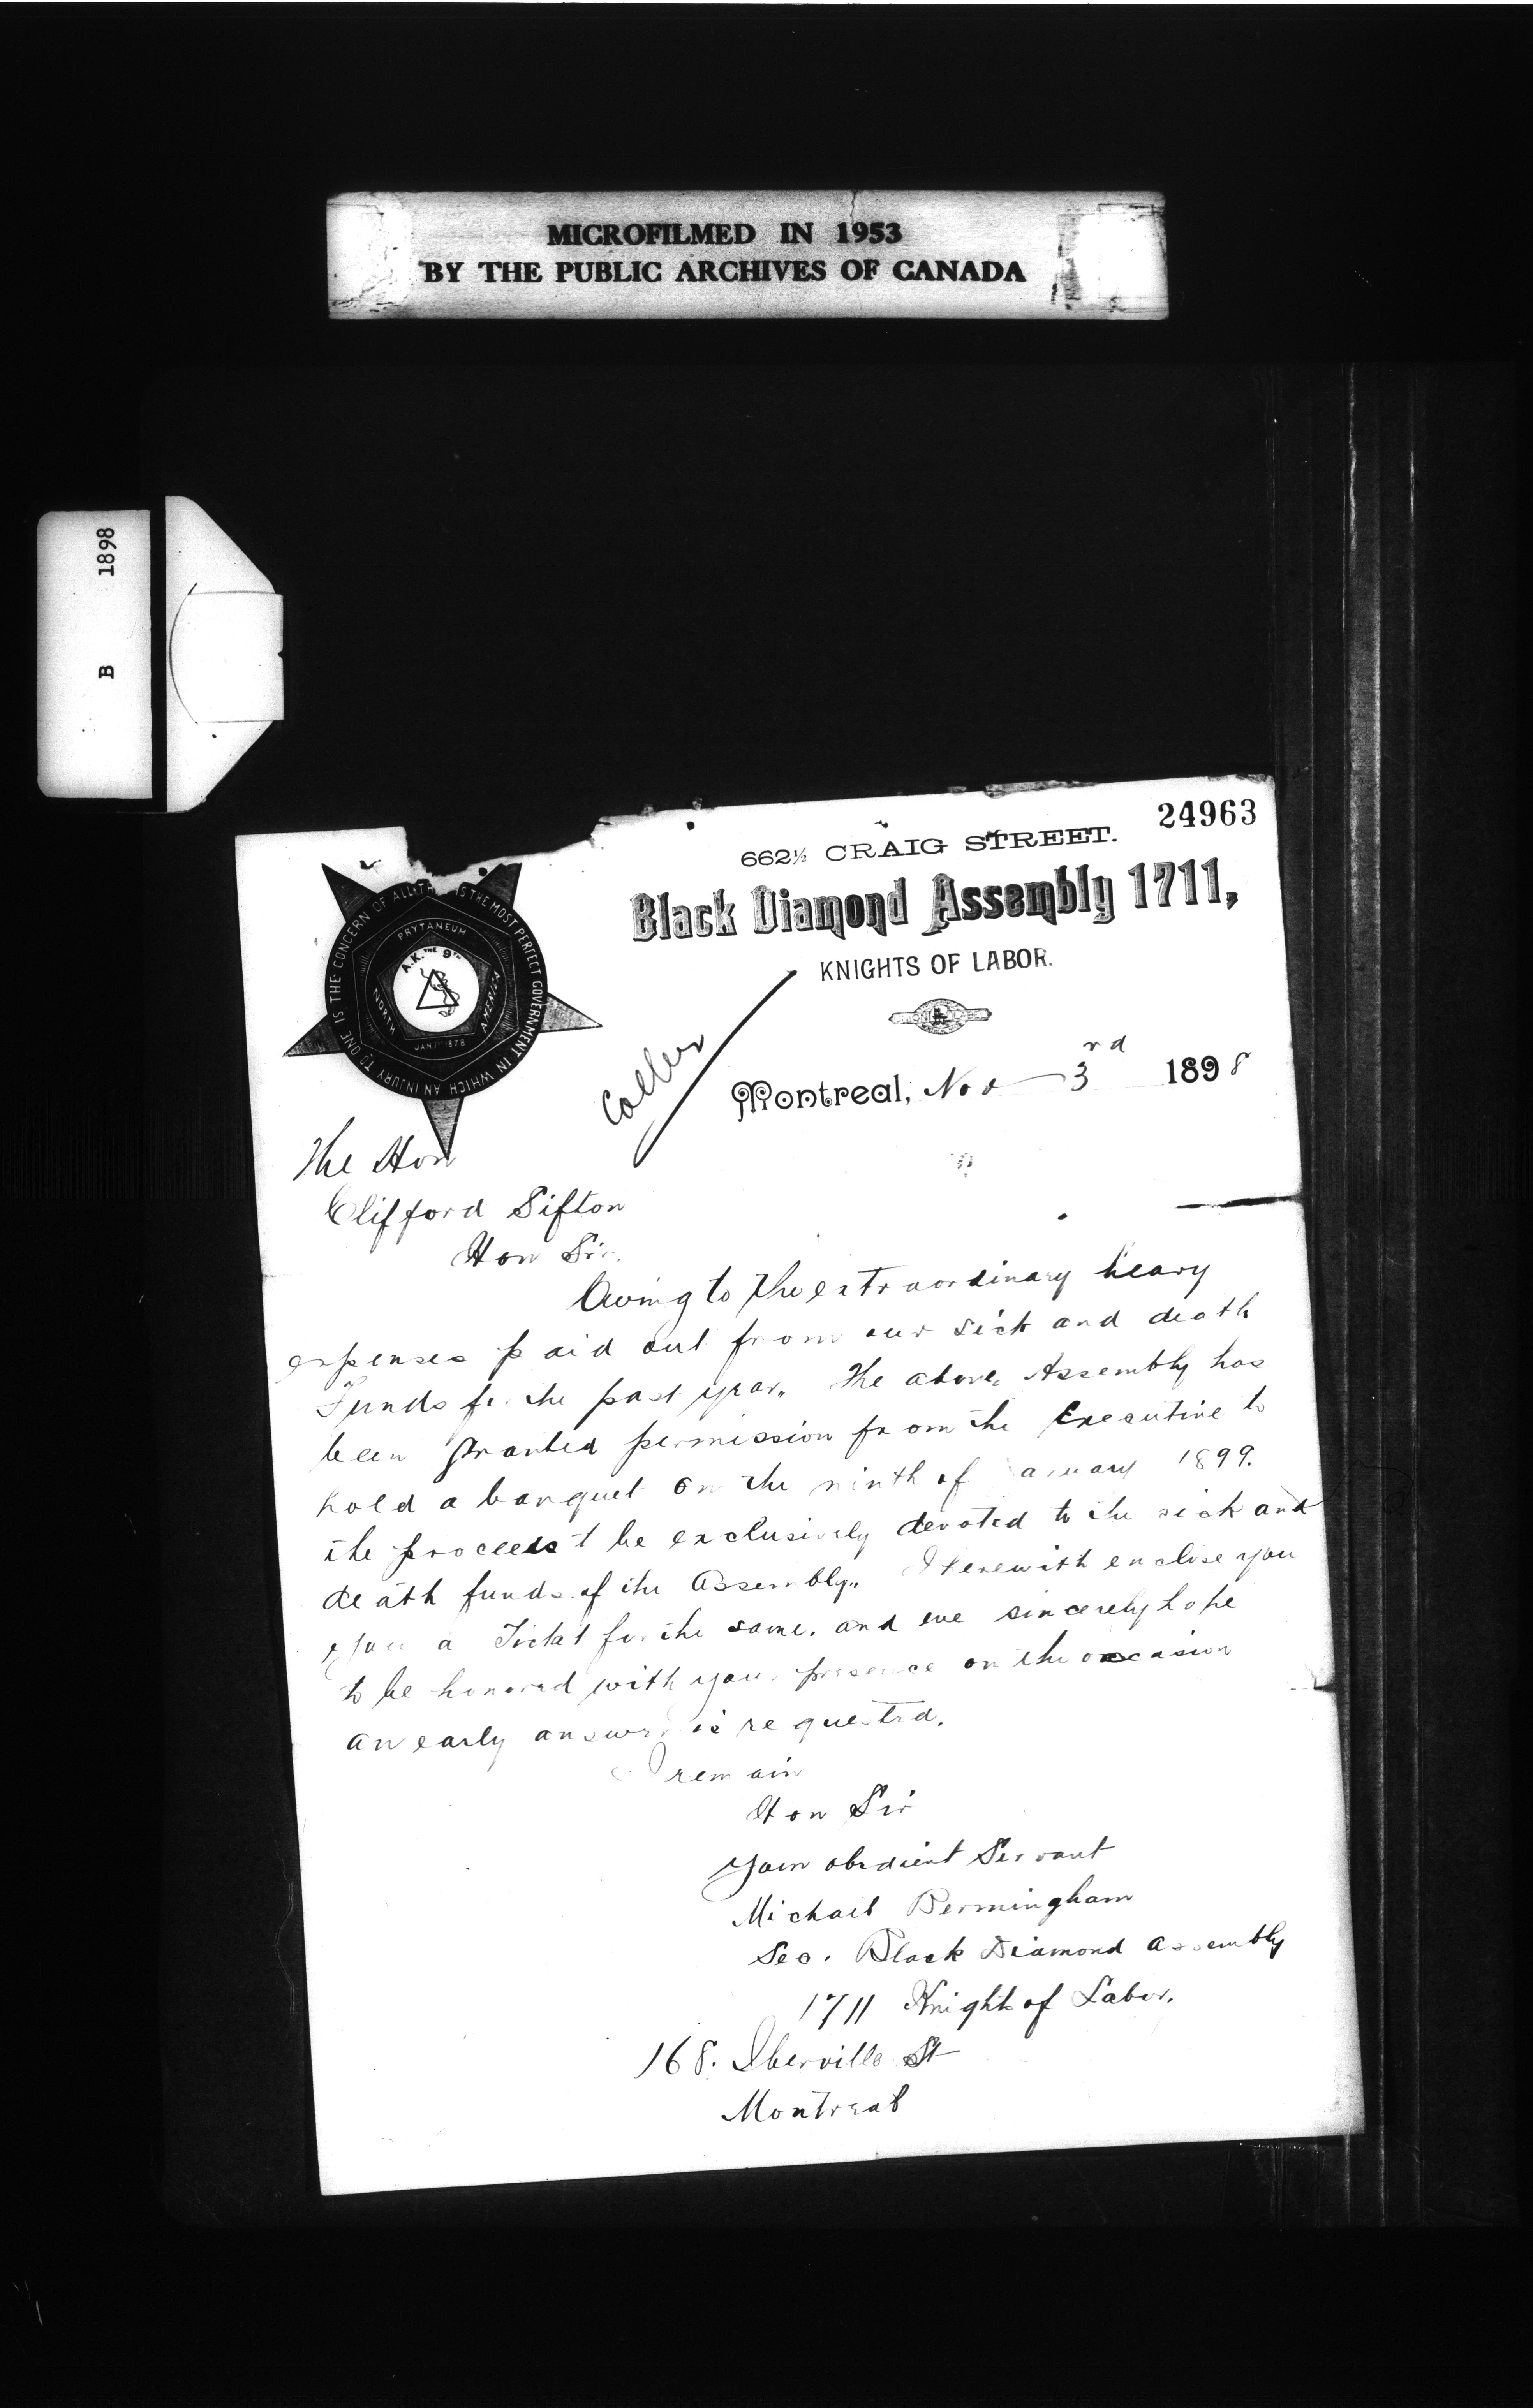 MICROFILMED IN 1953
BY THE PUBLIC ARCHIVES OF CANADA
B 1898
24963
662½ CRAIG STREET.
Black Diamond Assembly 1711,
KNIGHTS OF LABOR.
THAT IS THE MOST PERFECT GOVERNMENT IN WHICH AN INJURY TO ONE IS THE CONCERN OF ALL
PRYTANEUM
NORTH AMERICA
JAN 1ST 1878
A.K. THE 9TH
Montreal, Nov 3rd 1898
The Hon
Clifford Sifton
Hon Sir.
Owing to the extraordinary heavy
expenses paid out from our sick and death
Funds for the past year. The above Assembly has
been granted permission from the Executive to
hold a banquet on the ninth of January 1899.
the proceeds t be exclusively devoted to the sick and
death funds of the Assembly. I herewith enclose you
you a Ticket for the same. and we sincerely hope
to be honored with your presence on the occasion
an early answer is requested.
I remain
Hon Sir
Your obedient Servant
Michael Bermingham
Sec. Black Diamond Assembly
1711 Knights of Labor.
168. Iberville St
Montreal